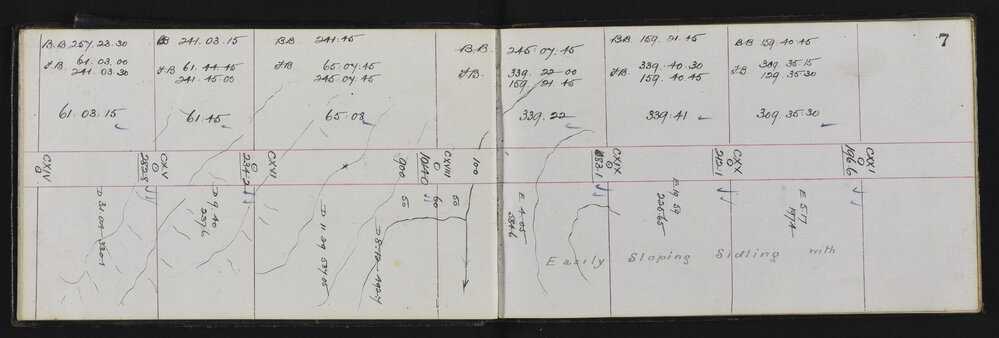 7
B.B. 257.23.30
F.B. 61.03.00
241.03.30
61.03.15
BB 241.03.15
F.B 61.44.45
241.45.00
61.45
BB 241.45
FB 65.07.45
245.07.45
65.08
B.B. 245.07.45
F.B. 339.22.00
159.21.45
339.22
BB. 159.21.45
F.B. 339.40.30
159.40.45
339.41
BB 159.40.45
FB 309.35.15
129.35.30
309.35.30
CXIV
O
CXV
O
282.8
CXVI
O
234.2
x
900
CXVIII
O
1040.0
100
CXIX
O
83.1
CXX
O
212.1
CXXI
O
196.6
D 9.40
237.6
D 11.29
50
60
50
E 4.05
534.6
E 9.59
E 5.17
197.4
Easily Sloping Sidling with